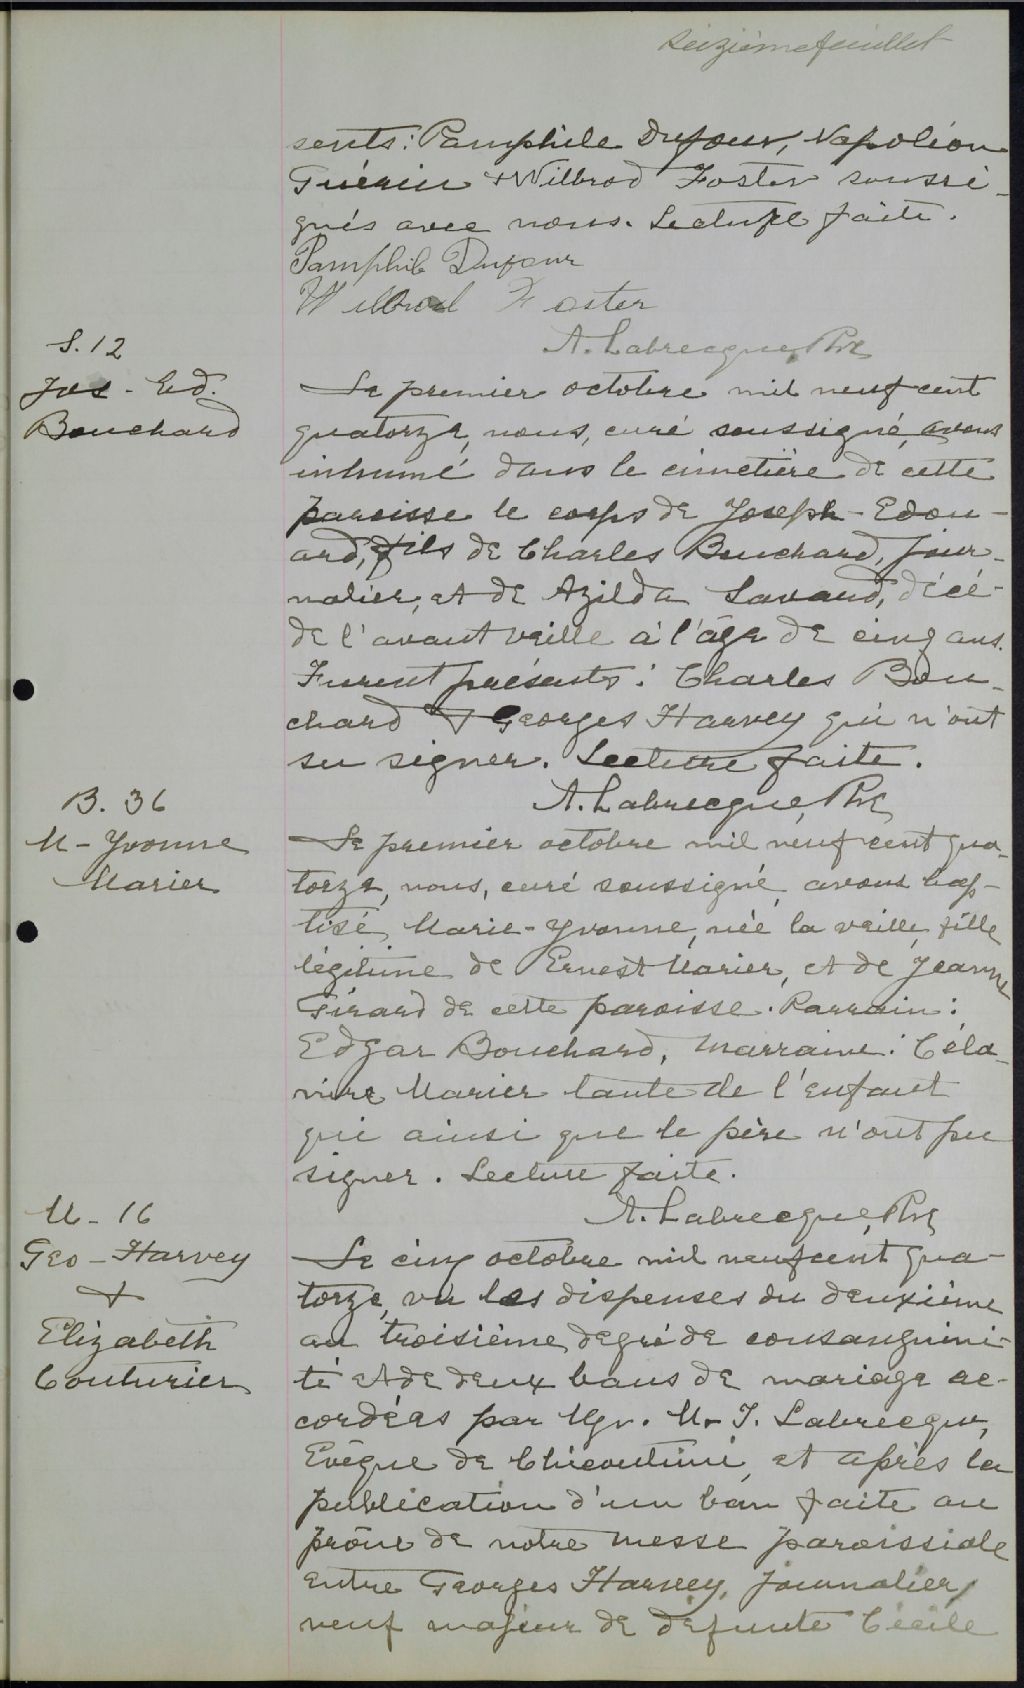 Seizième feuillet
sents: Pamphile Dufour, Napoléon
Guérin & Wilbrod Foster soussi-
gnés avec nous. Lecture faite.
Pamphile Dufour
Wilbrod Foster
A. Labrecque, Ptre
S. 12
Jos - Ed.
Bouchard
Le premier octobre mil neuf cent
quatorze, nous, curé soussigné, avons
inhumé dans le cimetière de cette
paroisse le corps de Joseph - Edou-
ard, fils de Charles Bouchard, jour-
nalier, et de Azilda Savard, décé-
dé l'avant veille à l'âge de cinq ans.
Furent présents: Charles Bou-
chard & Georges Harvey qui n'ont
su signer. Lecture faite.
A. Labrecque, Ptre
B. 36
M - Yvonne
Marier
Le premier octobre mil neuf cent qua-
torze, nous, curé soussigné, avons bap-
tisé, Marie - Yvonne, née la veille, fille
légitime de Ernest Marier, et de Jeanne
Girard de cette paroisse. Parrain:
Edgar Bouchard, marraine: Céla-
nire Marier tante de l'enfant
qui ainsi que le père n'ont pu
signer. Lecture faite.
A. Labrecque, Ptre
M - 16
Geo - Harvey
&
Elizabeth
Couturier
Le cinq octobre mil neuf cent qua-
torze, vu les dispenses du deuxième
au troisième degré de consanguini-
té et de deux bans de mariage ac-
cordées par Mgr. M. T. Labrecque,
Evêque de Chicoutimi, et après la
publication d'un ban faite au
prône de notre messe paroissiale
entre Georges Harvey, journalier,
veuf majeur de défunte Cécile